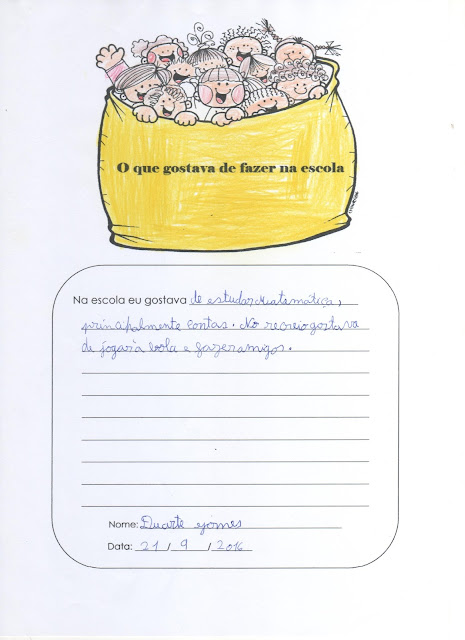 O que gostava de fazer na escola
Na escola eu gostava de estudar Matemática,
principalmente contas. No recreio gostava
de jogar à bola e fazer amigos.
Nome: Duarte Gomes
Data: 21 / 9 / 2016